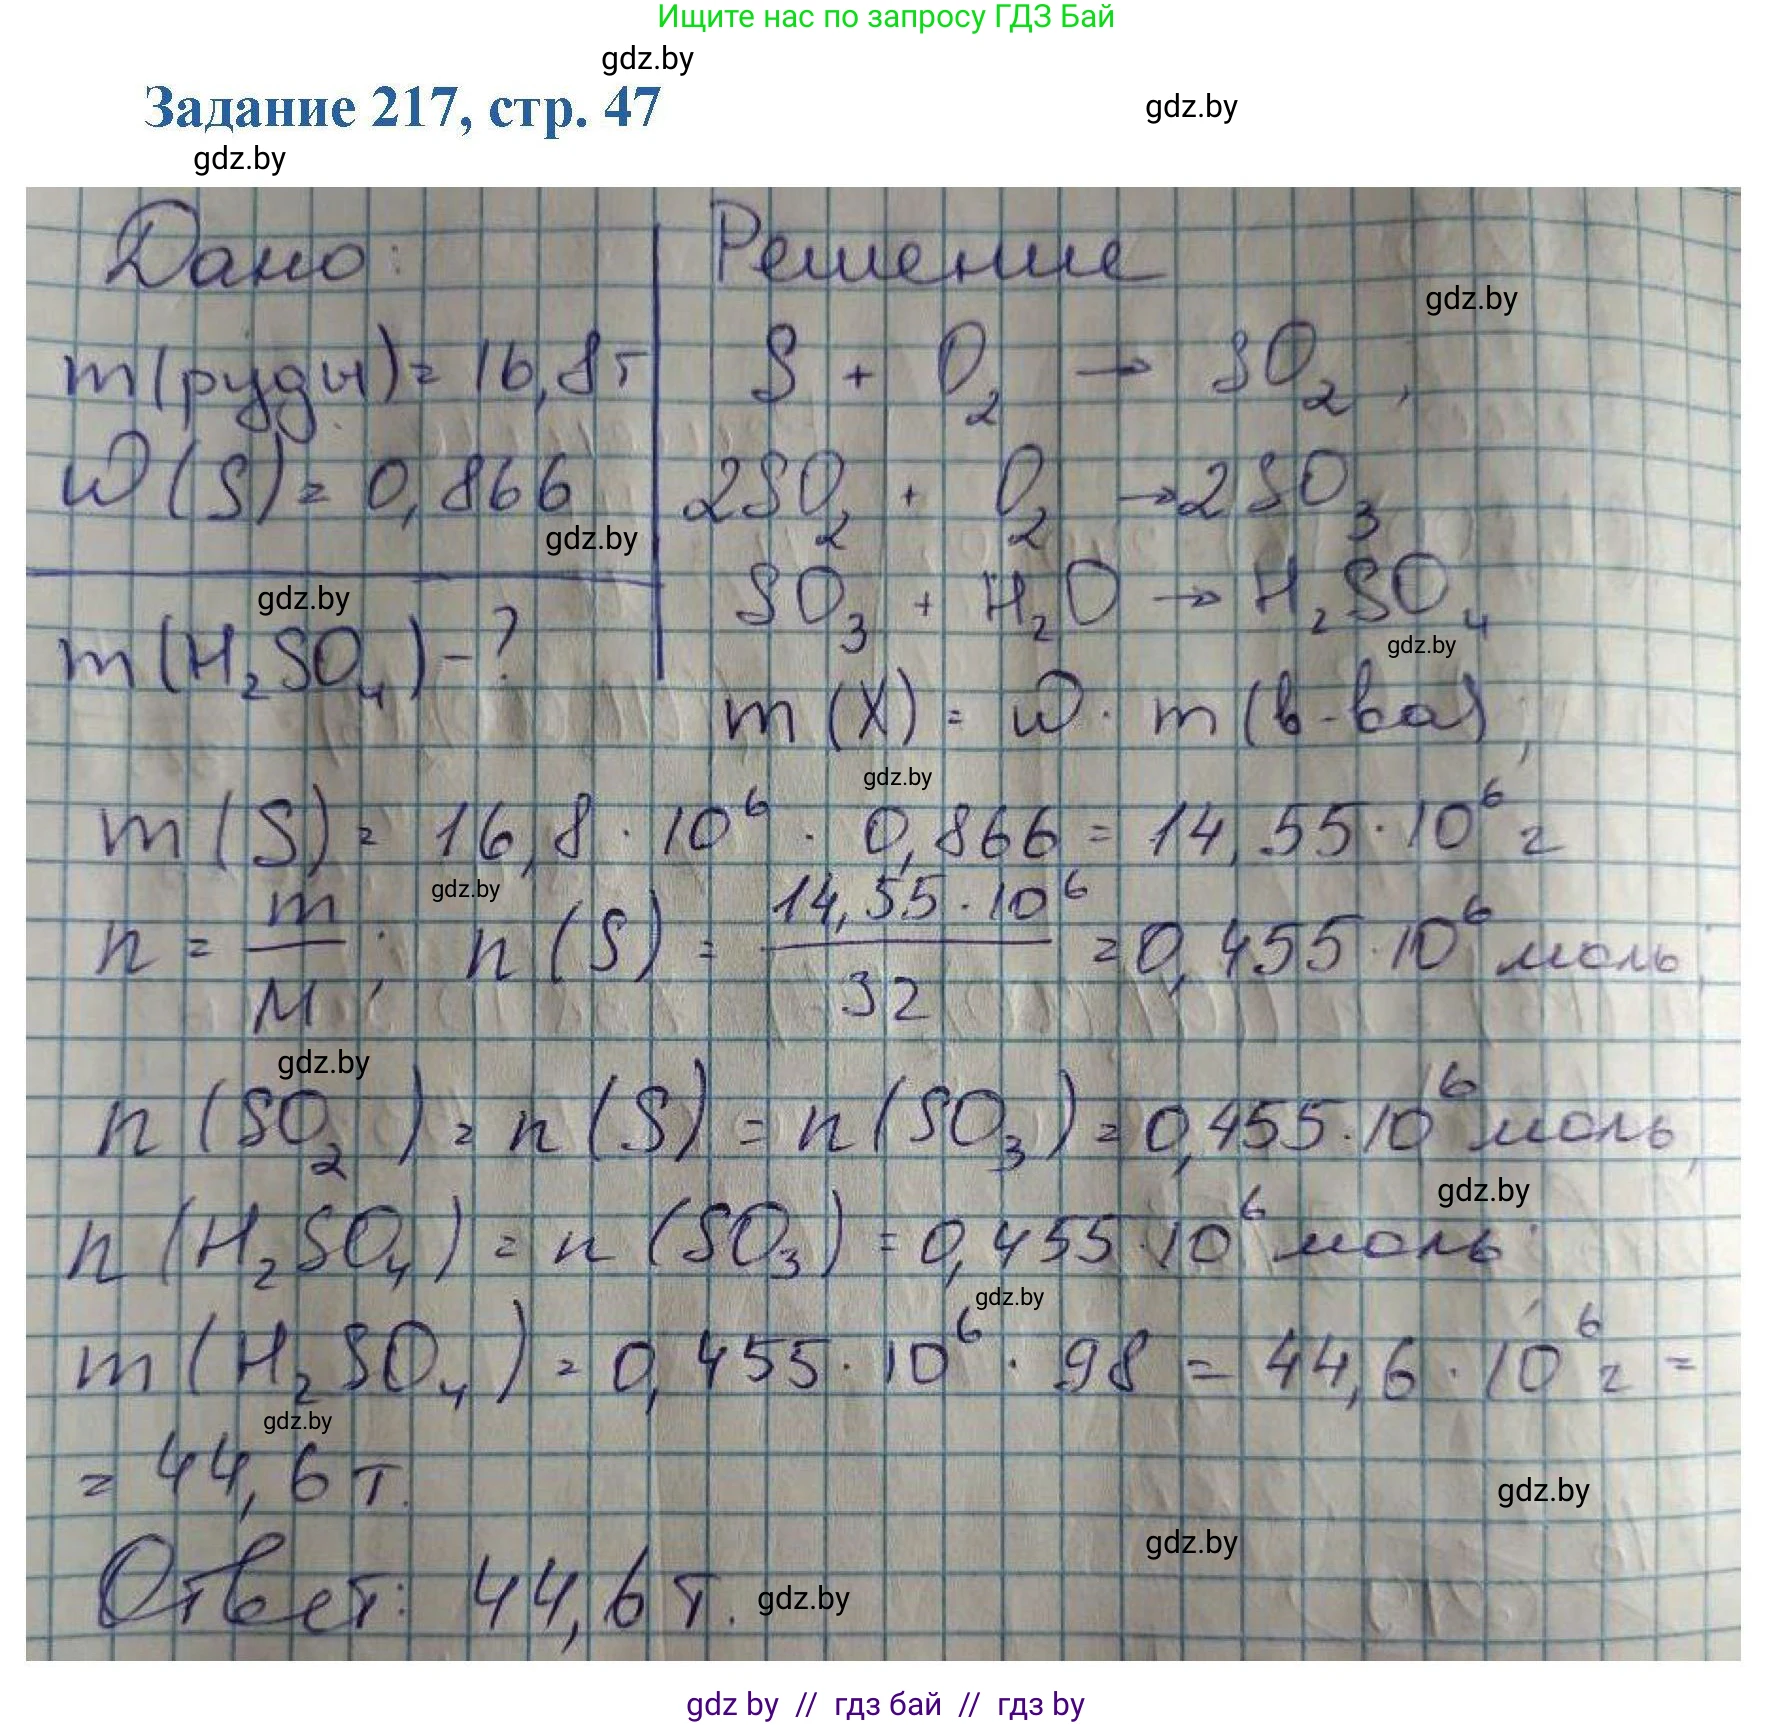 Ищите нас по запросу ГДЗ Бай
gdz.by
Задание 217, стр. 47
gdz.by
gdz.by
Дано:
Решение
gdz.by
m(руды) = 16,8т
S + O₂ → SO₂,
w(S) = 0,866
2SO₂ + O₂ → 2SO₃
gdz.by
gdz.by
SO₃ + H₂O → H₂SO₄
gdz.by
m(H₂SO₄) - ?
m(X) = w · m(в-ва);
gdz.by
m(S) = 16,8 · 10⁶ · 0,866 = 14,55 · 10⁶ г
gdz.by
n = m/M; n(S) = 14,55 · 10⁶/32 = 0,455 · 10⁶ моль;
gdz.by
n(SO₂) = n(S) = n(SO₃) = 0,455 · 10⁶ моль;
gdz.by
n(H₂SO₄) = n(SO₃) = 0,455 · 10⁶ моль;
gdz.by
m(H₂SO₄) = 0,455 · 10⁶ · 98 = 44,6 · 10⁶ г =
gdz.by
= 44,6 т.
gdz.by
gdz.by
Ответ: 44,6 т.
gdz.by
gdz by // гдз бай // гдз by